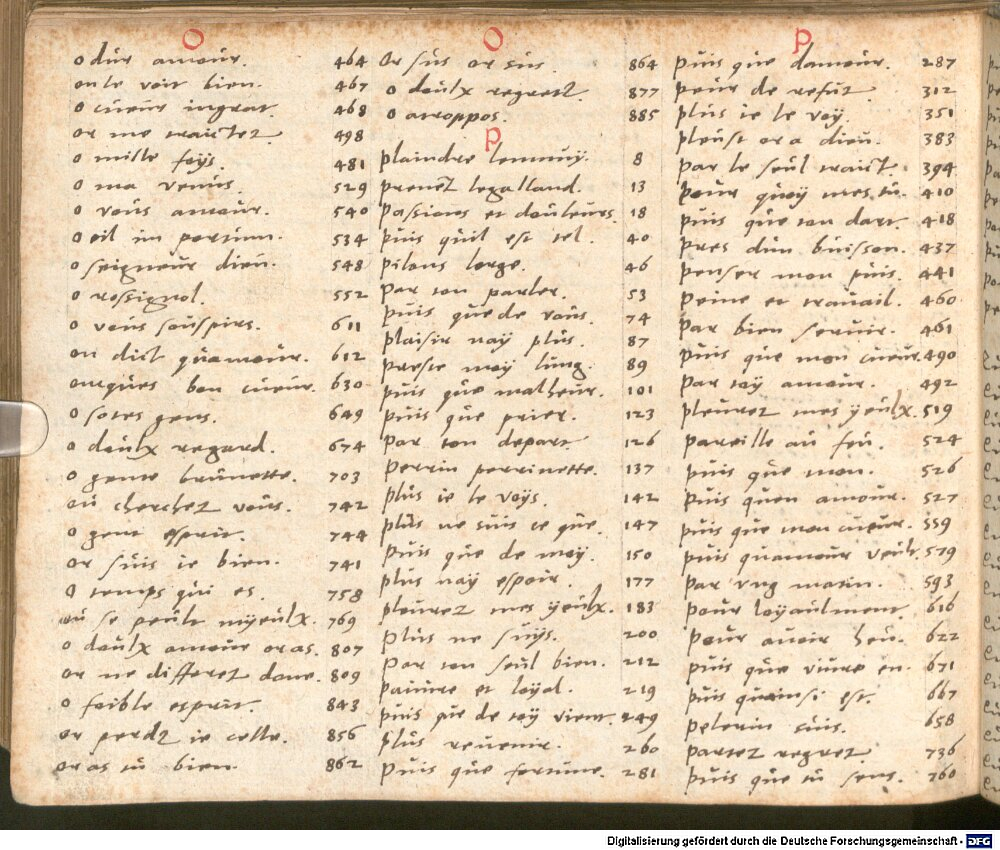 O
o dur amour. 464
on le voit bien. 467
o cueur ingrat. 468
or me traictez 498
o mille foys 481
o ma venus. 529
o vous amour. 540
o oil im portun. 534
o seigneur dieu. 548
o rossignol. 552
o vous souspirs. 611
on dict quamour. 612
onques bon cueur. 630
o sotes gens. 649
o doulx regard. 674
o gente brunette. 703
ou cherchez vous. 742
o gent esprit. 744
or suis ie bien. 741
O temps qui es. 758
ou se peult myeulx. 769
o doulx amour oras. 807
or ne differez donc. 809
o foible esprit. 843
or perdz ie celle. 856
or as tu bien. 862
O
Or sus or sus. 864
o doulx regretz. 877
o atroppos. 885
P
plaindre lennuy. 8
prenez legalland. 13
passions et douleurs. 18
puis quil est tel. 40
pilons lorge. 46
par ton parler. 53
puis que de vous. 74
plaisir nay plus. 87
preste moy lung. 89
puis que malheur. 101
puis que prier. 123
par ton depart 126
perrin perrinette. 137
plus ie le voys. 142
plus ne suis ce que. 147
puis que de moy. 150
plus nay espoir. 177
plourez mes yeulx. 183
plus ne suys. 200
par ton seul bien. 212
pauure et loyal. 219
puis que de toy vient. 249
plus reuenir. 260
puis que fortune. 281
P
puis que damour. 287
pour de refuz. 312
plus ie le voy. 351
pleust or a dieu. 383
par le seul traict. 394
pour quoy mes tu. 410
puis que ton dart. 418
pres dun buisson. 437
penser mon puis. 441
peine et trauail. 460
par bien seruir. 461
puis que mon cueur. 490
par toy amour. 492
pleurez mes yeulx. 519
pareille au feu. 524
puis que mon. 526
puis quen amour. 527
puis que mon cueur. 559
puis quamour veult. 579
par vng matin. 593
pour loyaulment. 616
pour auoir heu. 622
puis que viure en. 671
puis quainsi est. 667
pelerin suis. 658
partez regretz. 736
puis que tu sens. 760
Digitalisierung gefördert durch die Deutsche Forschungsgemeinschaft - DFG